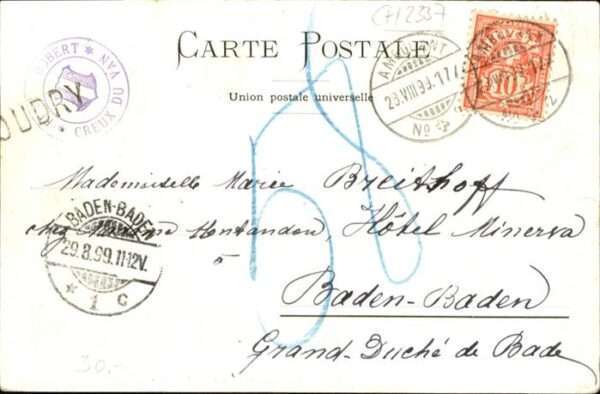 CH2337
CARTE POSTALE
Union postale universelle
ROBERT * CREUX DU VAN *
OUDRY
AMBULANT
28.VIII.99.-17
No
10
AMBULANT
Mademoiselle Marie Breithoff
chez Madame Montandon, Hôtel Minerva
à
Baden-Baden
Grand-Duché de Bade
BADEN-BADEN
29.8.99.11-12V.
* 1 c
30.-